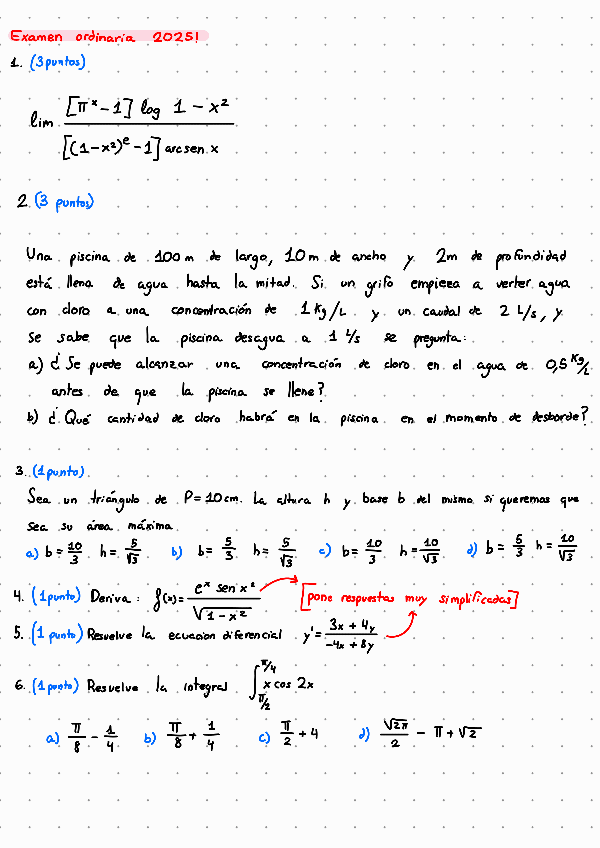 Examen ordinaria 2025!
1. (3puntos)
lim [π^x - 1] log 1 - x² / [(1-x²)^e - 1] arcsen x
2. (3 puntos)
Una piscina de 100 m de largo, 10 m de ancho y 2m de profundidad
está llena de agua hasta la mitad. Si un grifo empieza a verter agua
con cloro a una concentración de 1 Kg/L y un caudal de 2 L/s, y
se sabe que la piscina desagua a 1 L/s se pregunta:
a) ¿Se puede alcanzar una concentración de cloro en el agua de 0,5 Kg/L
antes de que la piscina se llene?
b) ¿Qué cantidad de cloro habrá en la piscina en el momento de desborde?
3. (1punto)
Sea un triángulo de P=10cm. La altura h y base b del mismo si queremos que
sea su área máxima.
a) b= 10/3 h= 5/√3 b) b= 5/3 h= 5/√3 c) b= 10/3 h= 10/√3 d) b= 5/3 h= 10/√3
4. (1punto) Deriva: f(x)= e^x sen x² / √(1-x²) [pone respuestas muy simplificadas]
5. (1 punto) Resuelve la ecuacion diferencial y'= 3x + 4y / -4x + 8y
6. (1punto) Resuelve la integral ∫_{π/2}^{π/4} x cos 2x
a) π/8 - 1/4 b) π/8 + 1/4 c) π/2 + 4 d) √2π/2 - π + √2